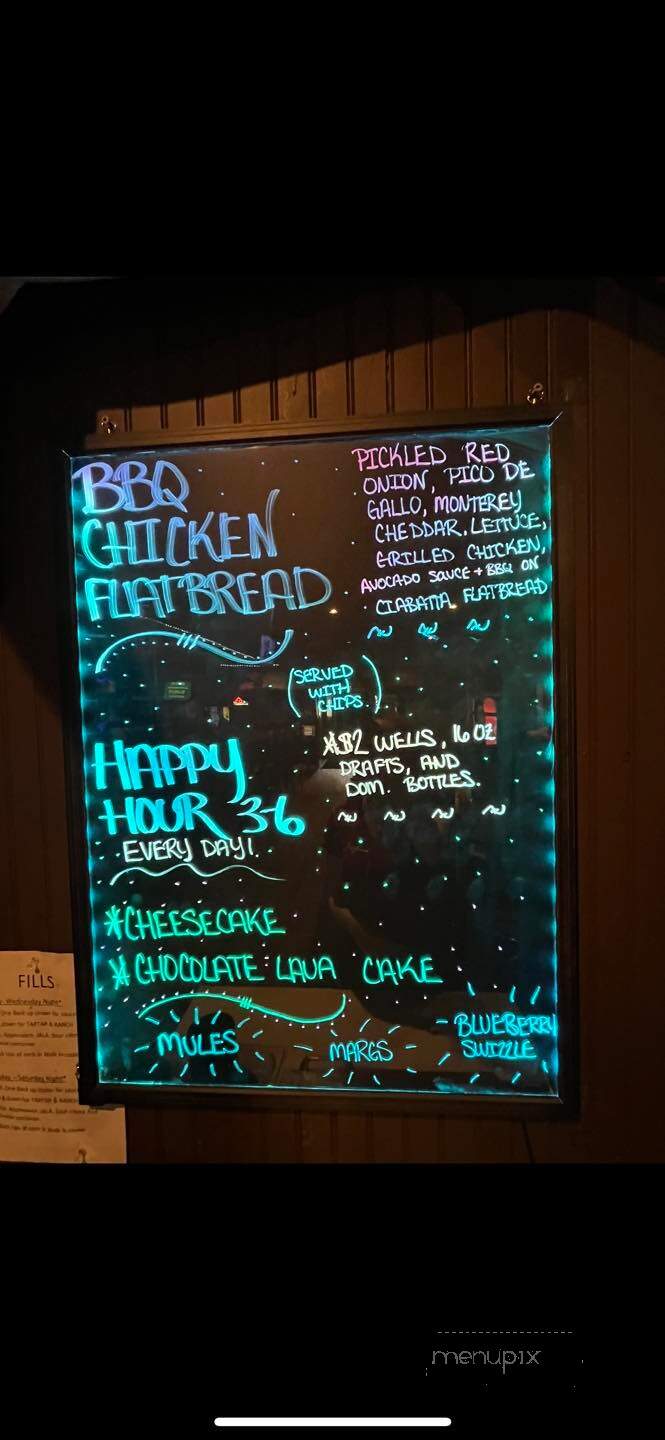 BBQ
CHICKEN
FLATBREAD
PICKLED RED
ONION, PICO DE
GALLO, MONTEREY
CHEDDAR, LETTUCE,
GRILLED CHICKEN,
AVOCADO SAUCE + BBQ ON
CIABATTA FLATBREAD
(SERVED
WITH
CHIPS.)
HAPPY
HOUR 3-6
EVERY DAY!
*$2 WELLS, 16 OZ
DRAFTS, AND
DOM. BOTTLES.
*CHEESECAKE
*CHOCOLATE LAVA CAKE
MULES
MARGS
BLUEBERRY
SWIZZLE
FILLS
menupix